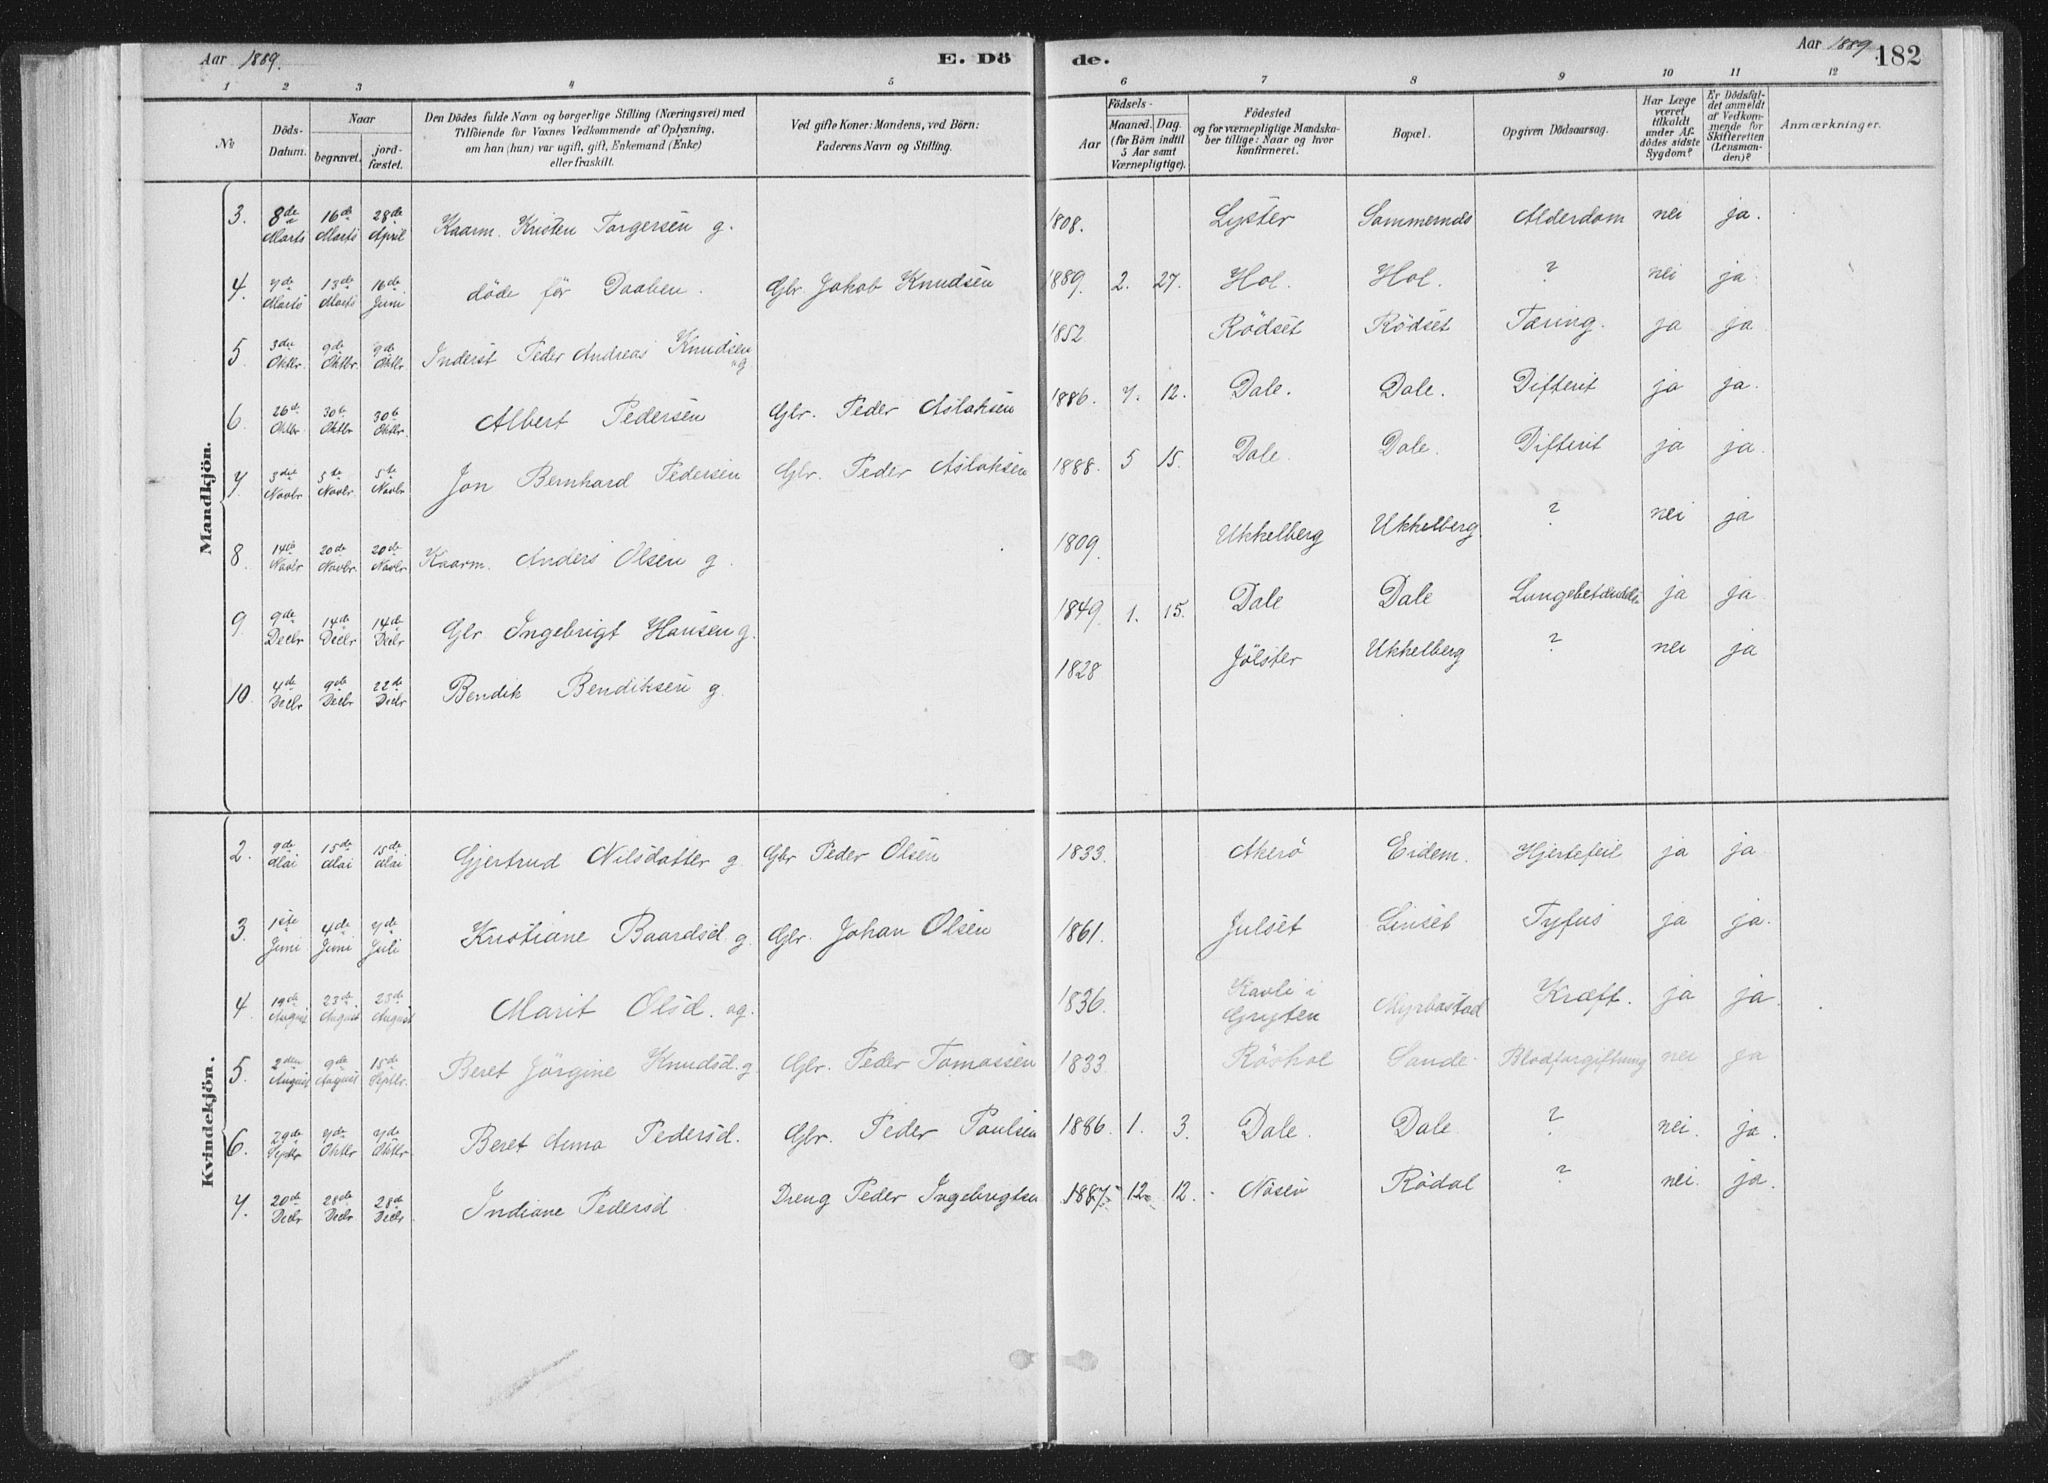 Aar 1889. E. Dö de. Aar 1889 182
1 2 3 4 5 6 7 8 9 10 11 12
No
Döds-Datum.
Naar
begravet.
jord-fæstet.
Den Dödes fulde Navn og borgerlige Stilling (Næringsvei) med
Tilföiende for Voxnes Vedkommende af Oplysning,
om han (hun) var ugift, gift, Enkemand (Enke)
eller fraskilt.
Ved gifte Koner: Mandens, ved Börn:
Faderens Navn og Stilling.
Födsels-
Aar
Maaned. Dag.
(for Börn indtil
5 Aar samt
Værnepligtige).
Födested
og for værnepligtige Mandska-
ber tillige: Naar og hvor
konfirmeret.
Bopæl.
Opgiven Dödsaarsag.
Har Læge
været
tilkaldt
under Af-
dödes sidste
Sygdom?
Er Dödsfal-
det anmeldt
af Vedkom-
mende for
Skifteretten
(Lensman-
den)?
Anmærkninger.
Mandkjön.
3. 8de Marts 16de Marts 28de April Kaarm. Kristen Torgersen g. 1808. Lyster Sammernds Alderdom nei ja.
4. 7de Marts 13de Marts 16de Juni döde för Daaben. Gbr Jakob Knudsen 1889. 2. 27. Hol. Hol. ? nei ja
5 3die Oktbr. 9de Oktbr. 9de Oktbr Inderst Peder Andreas Knudsen g 1852 Rödset Rödset Tæring. ja ja
6. 26de Oktbr 30te Oktbr 30te Oktbr. Albert Pedersen Gbr. Peder Aslaksen 1886. 7. 12. Dale. Dale. Difterit ja ja.
7 3die Novbr 5te Novbr. 5te Novbr Jon Bernhard Pedersen Gbr. Peder Aslaksen 1888. 5 15. Dale. Dale. Difterit ja ja.
8. 14de Novbr 20de Novbr. 20de Novbr Kaarm. Anders Olsen g. 1809. Ukkelberg Ukkelberg ? nei ja
9. 9de Decbr 14de Decbr 14de Decbr Gbr Ingebrigt Hansen g. 1849. 1. 15. Dale Dale Lungebetændelse ja ja
10. 4de Decbr 9de Decbr 22de Decbr Bendik Bendiksen g. 1828 Jölster Ukkelberg ? nei ja
Kvindekjön.
2. 9de Mai 15de Mai 15de Mai Gjertrud Nilsdatter g. Gbr Peder Olsen 1833. Akerö Eidem. Hjertefeil ja ja
3. 1ste Juni 4de Juni 7de Juli Kristiane Baardsd. g. Gbr. Johan Olsen 1861. Julset Linset Tyfus ja ja.
4. 19de August 23de August 23de August Marit Olsd. ug. 1836. Kavli i
Gryten Myrbostad Kræft. ja ja.
5. 2den August 9de August 15de Septbr. Beret Jörgine Knudsd. g. Gbr. Peder Tomassen 1833. Röshol Sande. Blodforgiftning nei ja
6. 29de Septbr 7de Oktbr 7de Oktbr Beret Anna Pedersd. Gbr. Peder Paulsen 1886. 1. 3. Dale. Dale ? nei. ja.
7. 20de Decbr 28de Decbr 28de Decbr. Indiane Pedersd Dreng Peder Ingebrigtsen 1887. 12. 12. Nosen Rödal ? nei. ja.